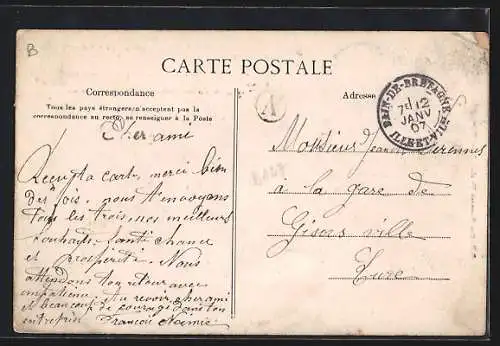 B
CARTE POSTALE
Correspondance
Tous les pays étrangers n'acceptent pas la
correspondance au recto, se renseigner à la Poste
Adresse
A
BAIN-DE-BRETAGNE
7E 12
JANV
07
ILLE-ET-VILNE
Cher ami
Reçu ta carte, merci bien
des fois, nous t'envoyons
tous les trois, nos meilleurs
souhaits, santé chance
et prospérité. Nous
attendons ton retour avec
impatience. Au revoir cher ami
et beaucoup de courage dans ton
entreprise François Noémie
Monsieur Jean
à la gare de
Gisors ville
Eure